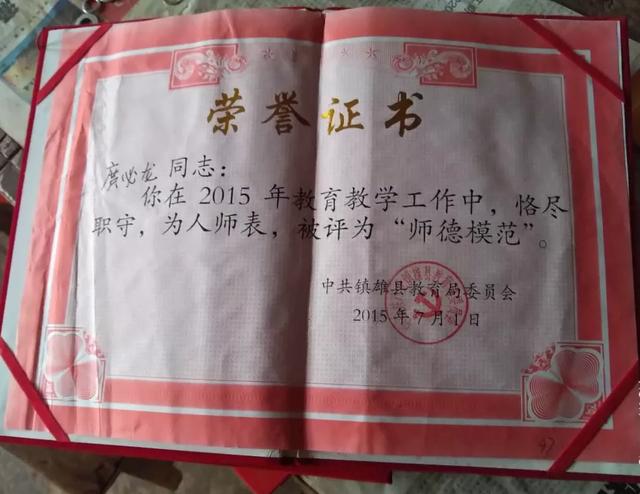 荣誉证书
庹必龙 同志:
你在 2015 年教育教学工作中，恪尽
职守，为人师表，被评为“师德模范”。
中共镇雄县教育局委员会
2015年7月1日